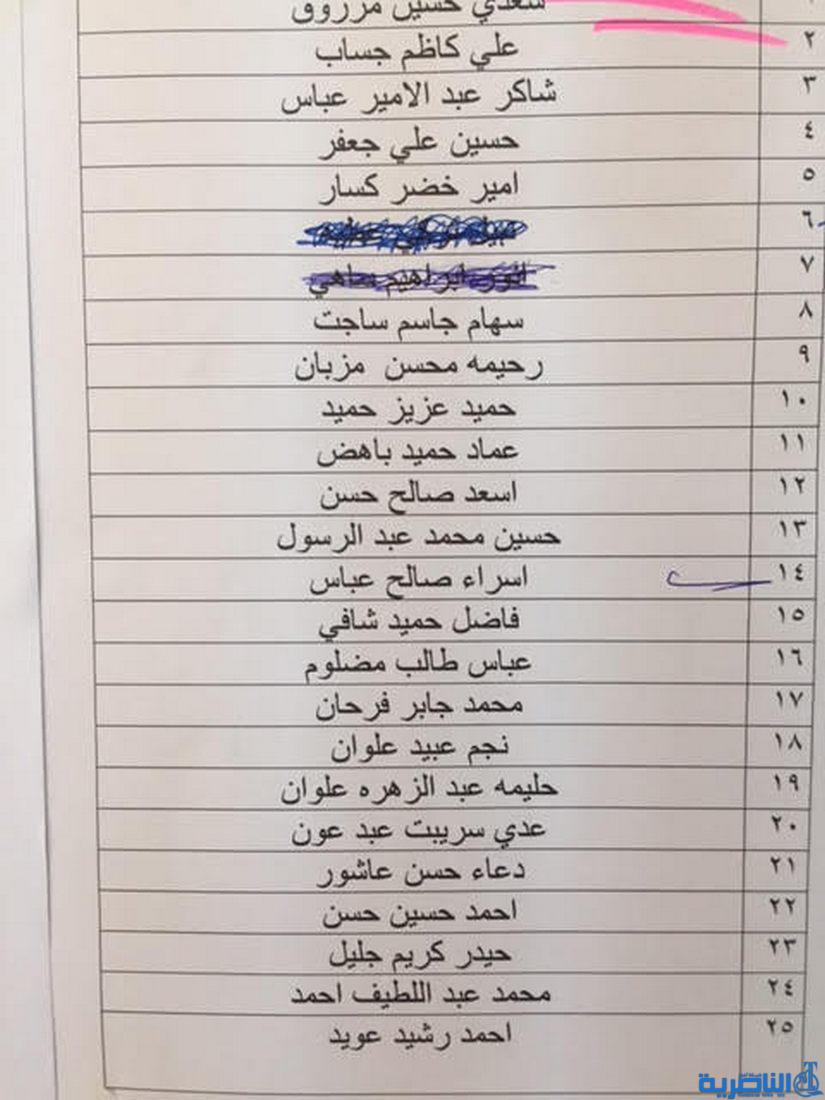 سعدي حسين مرزوق
٢ علي كاظم جساب
٣ شاكر عبد الامير عباس
٤ حسين علي جعفر
٥ امير خضر كسار
٦
٧ انور ابراهيم ساهي
٨ سهام جاسم ساجت
٩ رحيمه محسن مزبان
١٠ حميد عزيز حميد
١١ عماد حميد باهض
١٢ اسعد صالح حسن
١٣ حسين محمد عبد الرسول
١٤ اسراء صالح عباس
١٥ فاضل حميد شافي
١٦ عباس طالب مضلوم
١٧ محمد جابر فرحان
١٨ نجم عبيد علوان
١٩ حليمه عبد الزهره علوان
٢٠ عدي سريبت عبد عون
٢١ دعاء حسن عاشور
٢٢ احمد حسين حسن
٢٣ حيدر كريم جليل
٢٤ محمد عبد اللطيف احمد
٢٥ احمد رشيد عويد
الناصرية